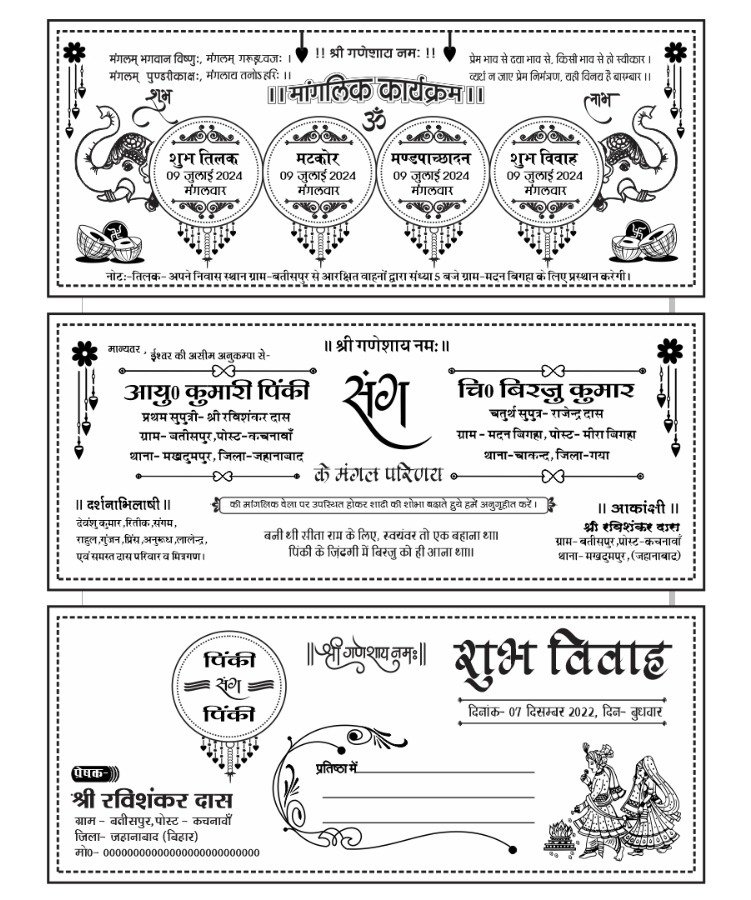 मंगलम् भगवान विष्णुः, मंगलम् गरूड़ध्वजः ।
मंगलम् पुण्डरीकाक्षः, मंगलाय तनोऽहरिः ।।
!! श्री गणेशाय नमः !!
प्रेम भाव से दया भाव से, किसी भाव से हो स्वीकार ।
व्यर्थ न जाए प्रेम निमंत्रण, यही विनय है बारम्बार ।।
।। मांगलिक कार्यक्रम ।।
शुभ
लाभ
ॐ
शुभ तिलक
09 जुलाई 2024
मंगलवार
मटकोर
09 जुलाई 2024
मंगलवार
मण्डपाच्छादन
09 जुलाई 2024
मंगलवार
शुभ विवाह
09 जुलाई 2024
मंगलवार
नोटः-तिलक- अपने निवास स्थान ग्राम-बतीसपुर से आरक्षित वाहनों द्वारा संध्या 5 बजे ग्राम-मदन बिगहा के लिए प्रस्थान करेगी।
॥ श्री गणेशाय नमः॥
मान्यतर , ईश्वर की असीम अनुकम्पा से-
आयु0 कुमारी पिंकी
प्रथम सुपुत्री- श्री रविशंकर दास
ग्राम- बतीसपुर,पोस्ट-कचनावाँ
थाना- मखदुमपुर, जिला-जहानाबाद
संग
चि0 बिरजु कुमार
चतुर्थ सुपुत्र- राजेन्द्र दास
ग्राम - मदन बिगहा, पोस्ट- मीरा बिगहा
थाना-चाकन्द, जिला-गया
के मंगल परिणय
की मांगलिक वेला पर उपस्थित होकर शादी की शोभा बढ़ाते हुये हमें अनुगृहीत करें ।
॥ दर्शनाभिलाषी ॥
देवंशु कुमार, रितीक,संगम,
राहुल,गुंजन,प्रिंस,अनुरूध,लालेन्द्र,
एवं समस्त दास परिवार व मित्रगण।
बनी थी सीता राम के लिए, स्वयंवर तो एक बहाना था॥
पिंकी के जिंदगी में बिरजु को ही आना था॥
॥ आकांक्षी ॥
श्री रविशंकर दास
ग्राम- बतीसपुर,पोस्ट-कचनावाँ
थाना- मखदुमपुर, (जहानाबाद)
पिंकी
संग
पिंकी
॥श्री गणेशाय नमः॥
शुभ विवाह
दिनांक- 07 दिसम्बर 2022, दिन- बुधवार
प्रतिष्ठा में
प्रेषक-
श्री रविशंकर दास
ग्राम - बतीसपुर, पोस्ट - कचनावाँ
जिला- जहानाबाद (बिहार)
मो0- 00000000000000000000000000